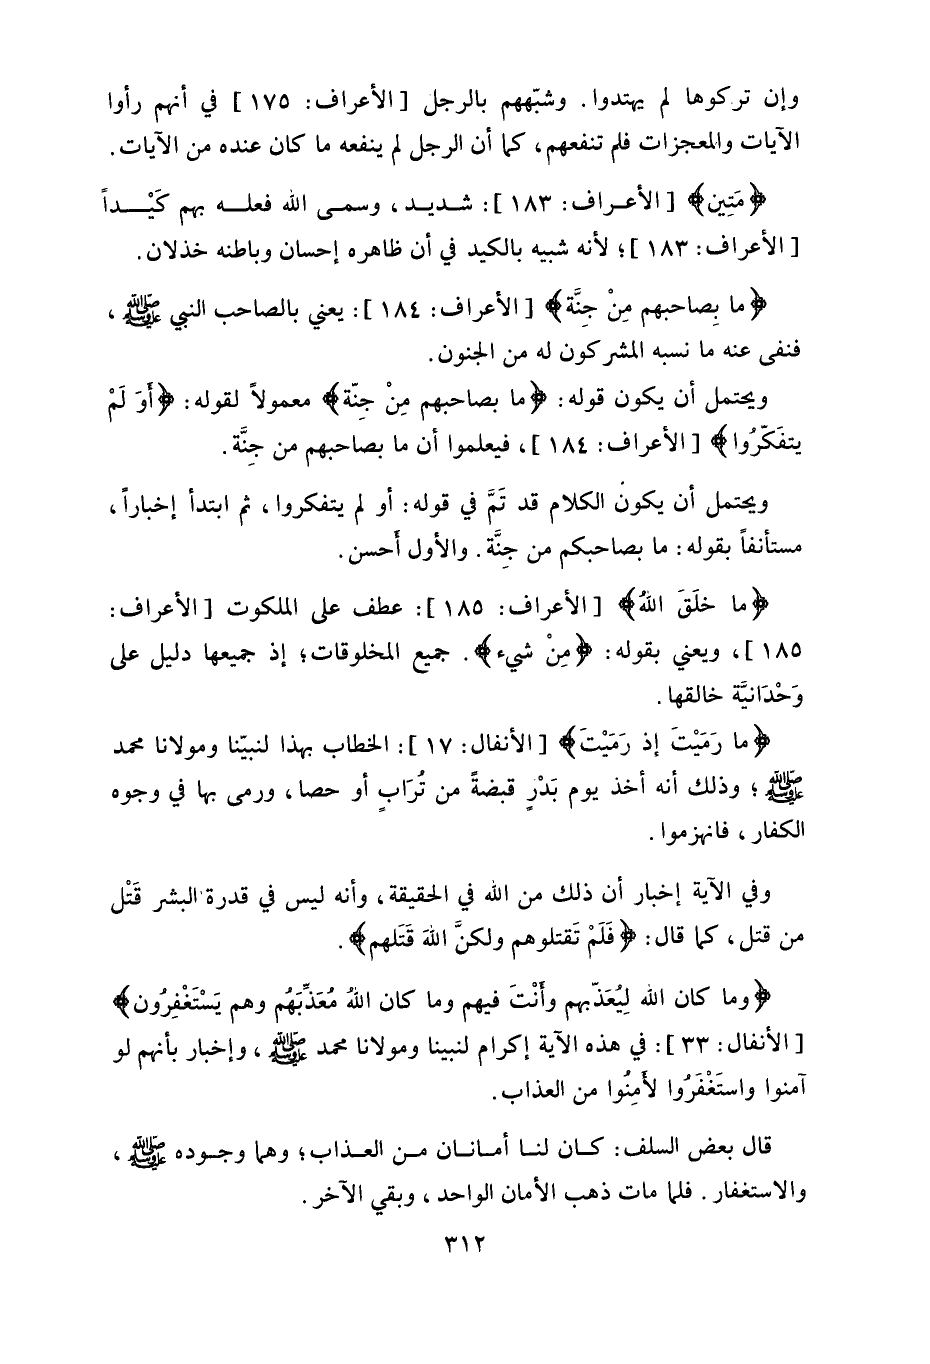 وإن تركوها لم يهتدوا. وشبّههم بالرجل [الأعراف: ١٧٥] في أنهم رأوا
الآيات والمعجزات فلم تنفعهم، كما أن الرجل لم ينفعه ما كان عنده من الآيات.
﴿مَتِين﴾ [الأعراف: ١٨٣]: شديد، وسمى الله فعله بهم كَيْداً
[الأعراف: ١٨٣]؛ لأنه شبيه بالكيد في أن ظاهره إحسان وباطنه خذلان.
﴿ما بِصاحبهم مِنْ جِنَّة﴾ [الأعراف: ١٨٤]: يعني بالصاحب النبي ﷺ،
فنفى عنه ما نسبه المشركون له من الجنون.
ويحتمل أن يكون قوله: ﴿ما بصاحبهم مِنْ جِنّة﴾ معمولاً لقوله: ﴿أَوَ لَمْ
يتفَكّرُوا﴾ [الأعراف: ١٨٤]، فيعلموا أن ما بصاحبهم من جِنَّة.
ويحتمل أن يكون الكلام قد تَمَّ في قوله: أو لم يتفكروا، ثم ابتدأ إخباراً،
مستأنفاً بقوله: ما بصاحبكم من جِنَّة. والأول أَحسن.
﴿ما خلَقَ اللهُ﴾ [الأعراف: ١٨٥]: عطف على الملكوت [الأعراف:
١٨٥]، ويعني بقوله: ﴿مِنْ شيء﴾. جميع المخلوقات؛ إذ جميعها دليل على
وَحْدَانيَّة خالقها.
﴿ما رَمَيْتَ إذ رَمَيْتَ﴾ [الأنفال: ١٧]: الخطاب بهذا لنبيّنا ومولانا محمد
ﷺ؛ وذلك أنه أخذ يوم بَدْرٍ قبضةً من تُرَابٍ أو حصا، ورمى بها في وجوه
الكفار، فانهزموا.
وفي الآية إخبار أن ذلك من الله في الحقيقة، وأنه ليس في قدرة البشر قَتْل
من قتل، كما قال: ﴿فَلَمْ تَقتلوهم ولكنَّ اللهَ قَتَلهم﴾.
﴿وما كان الله لِيُعَذّبهم وأَنْتَ فيهم وما كان اللهُ مُعَذِّبَهُم وهم يَسْتَغْفِرُون﴾
[الأنفال: ٣٣]: في هذه الآية إكرام لنبينا ومولانا محمد ﷺ، وإخبار بأنهم لو
آمنوا واستَغْفَرُوا لأَمِنُوا من العذاب.
قال بعض السلف: كان لنا أمانان من العذاب؛ وهما وجوده ﷺ،
والاستغفار. فلما مات ذهب الأمان الواحد، وبقي الآخر.
٣١٢